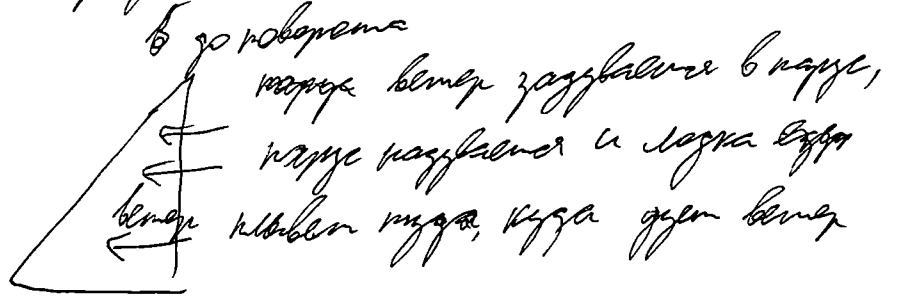 до поворота
ветер задувается в парус,
парус надувается и лодка
ветер плывет туда, куда дует ветер